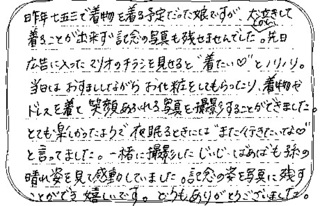 昨年七五三で着物を着る予定だった娘ですが、大泣きして
着ることが出来ず記念の写真も残せませんでした。先日
広告に入ったマリオのチラシを見せると"着たい♡"とノリノリ。
当日は おすましてしながら お化粧をしてもらったり、着物や
ドレスを着て 笑顔あふれる写真を撮影することができました。
とても楽しかったようで 夜眠るときには"また行きたいな♡"
と言ってました。一緒に撮影した じいじ・ばあばも 孫の
晴れ姿を見て感動していました。記念の姿を写真に残す
ことができ 嬉しいです。どうもありがとうございました。